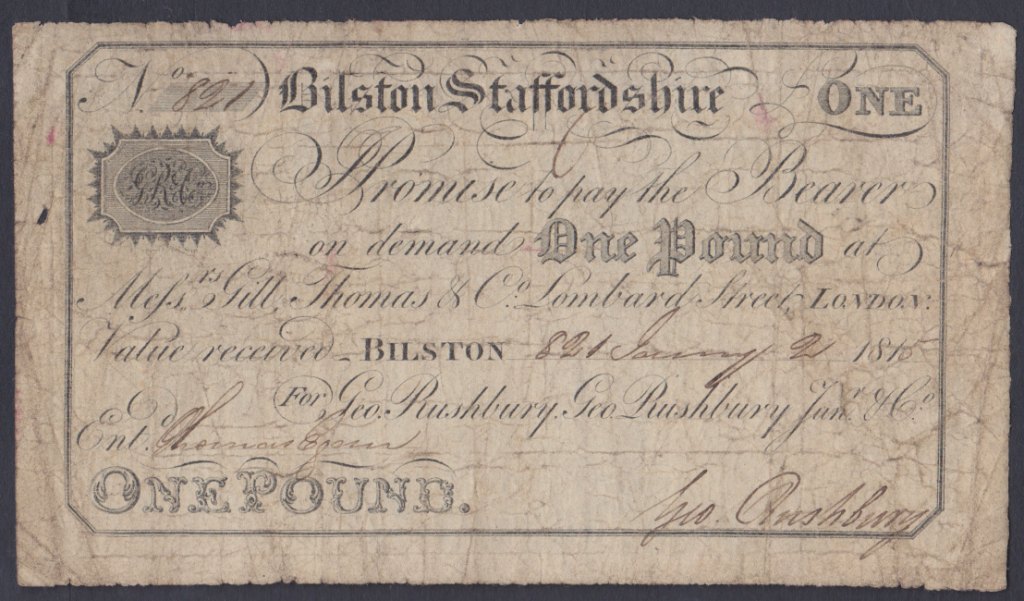 No. 821 Bilston Staffordshire £ ONE
GR & Co
I Promise to pay the Bearer
on demand One Pound at
Mefs.rs Gill, Thomas & Co. Lombard Street, LONDON.
Value received BILSTON 821 2 1815
For Geo. Rushbury, Geo. Rushbury Junr. & Co.
Entd. Thomas
ONE POUND.
Geo. Rushbury